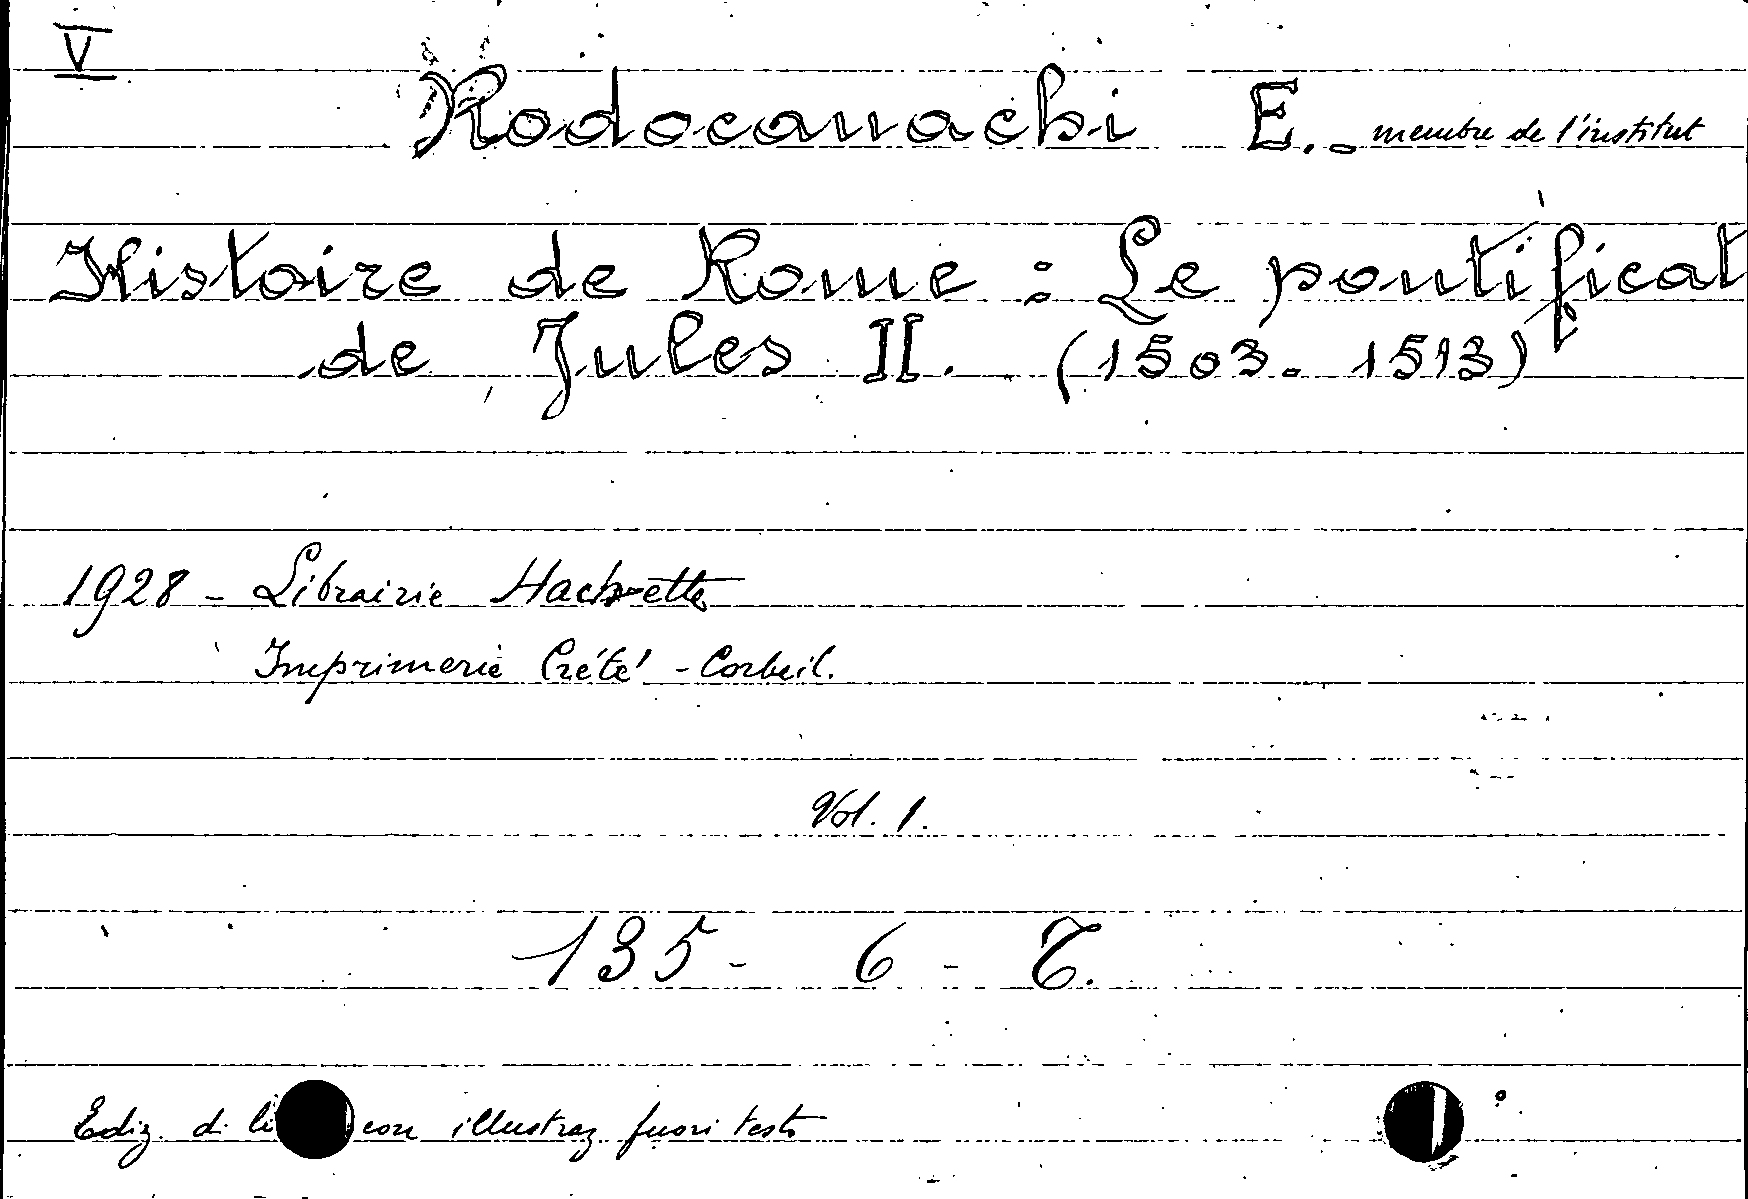 V
Rodocanachi E. - membre de l'institut
Histoire de Rome : Le pontificat
de Jules II. (1503 - 1513)
1928 - Librairie Hachette
Imprimerie Crété - Corbeil.
Vol. 1.
135 - 6 - T.
Ediz. di con illustraz fuori testo